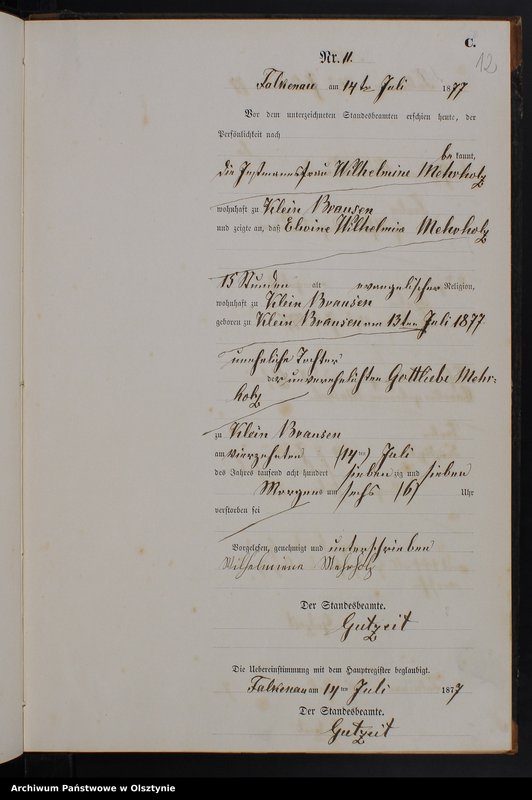 C.
12
Nr. 11.
Falkenau am 14ten Juli 1877
Vor dem unterzeichneten Standesbeamten erschien heute, der
Persönlichkeit nach
be kannt,
die Instmannsfrau Wilhelmine Mehrholz
wohnhaft zu Klein Bransen
und zeigte an, daß Elwine Wilhelmine Mehrholz
15 Stunden alt evangelischer Religion,
wohnhaft zu Klein Bransen
geboren zu Klein Bransen am 13ten Juli 1877
uneheliche Tochter
der unverehelichten Gottliebe Mehr-
holz
zu Klein Bransen
am vierzehnten (14ten) Juli
des Jahres tausend acht hundert sieben zig und sieben
Morgens um sechs (6) Uhr
verstorben sei
Vorgelesen, genehmigt und unterschrieben
Wilhelmiena Mehrholz
Der Standesbeamte.
Gutzeit
Die Uebereinstimmung mit dem Hauptregister beglaubigt.
Falkenau am 14ten Juli 1877
Der Standesbeamte.
Gutzeit
Archiwum Państwowe w Olsztynie